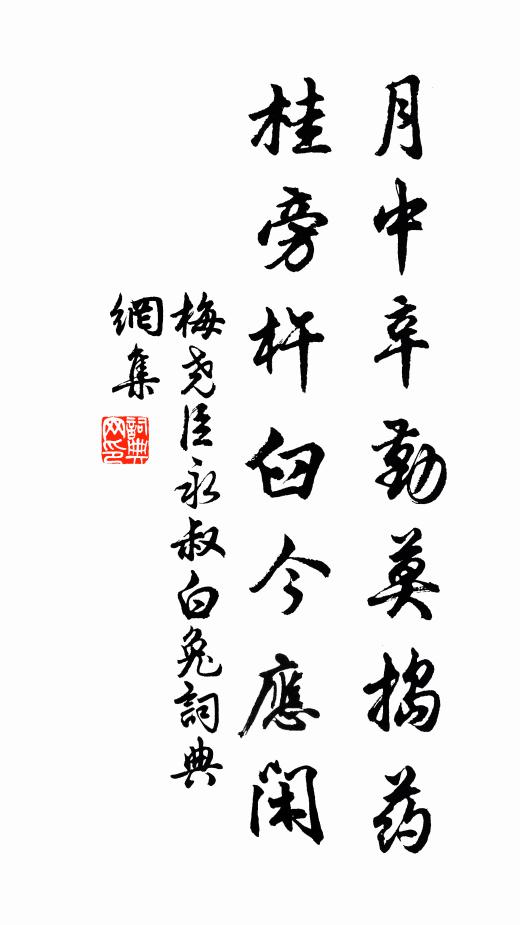 月中辛勤莫搗药
桂旁杵臼今應閑
梅尧臣永叔白兔詞典
網集
詞典
网印